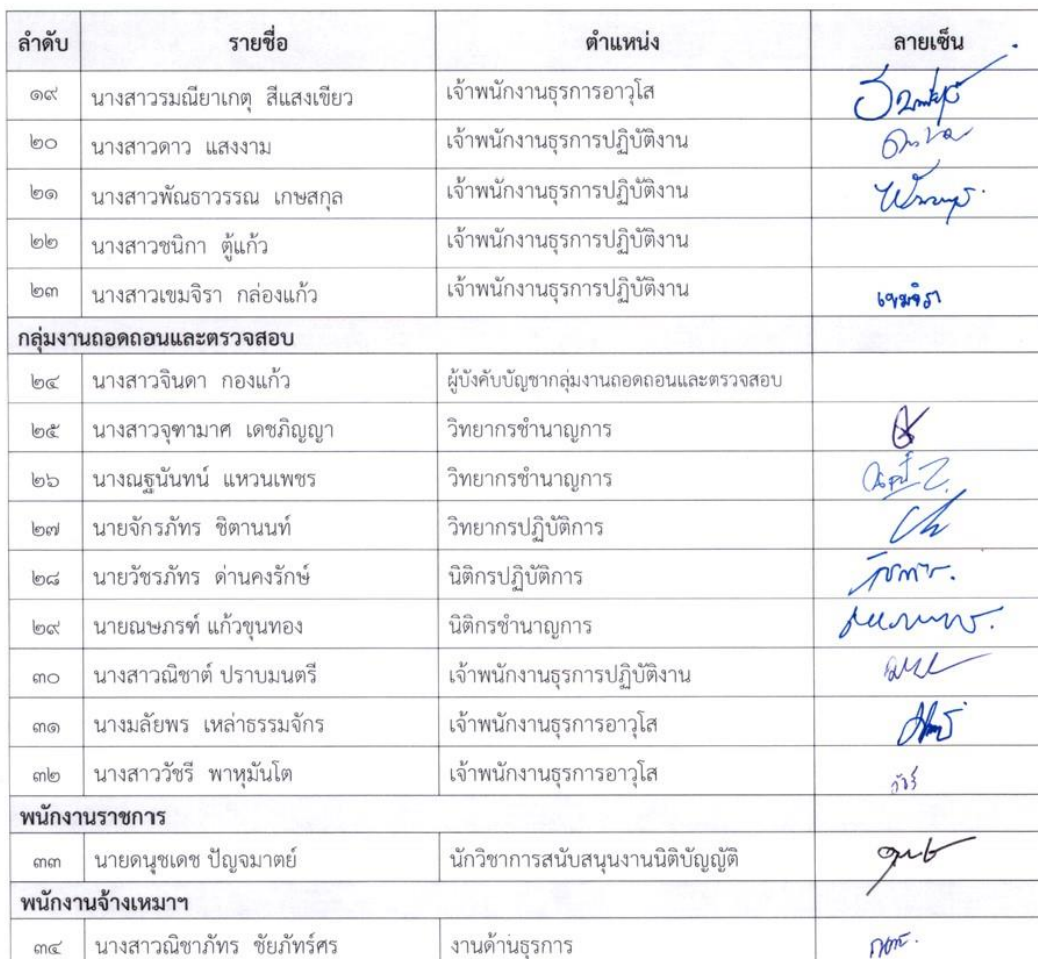 ลำดับ รายชื่อ ตำแหน่ง ลายเซ็น
๑๙ นางสาวรมณียาเกตุ สีแสงเขียว เจ้าพนักงานธุรการอาวุโส
๒๐ นางสาวดาว แสงงาม เจ้าพนักงานธุรการปฏิบัติงาน
๒๑ นางสาวพัณธาวรรณ เกษสกุล เจ้าพนักงานธุรการปฏิบัติงาน
๒๒ นางสาวชนิกา ตู้แก้ว เจ้าพนักงานธุรการปฏิบัติงาน
๒๓ นางสาวเขมจิรา กล่องแก้ว เจ้าพนักงานธุรการปฏิบัติงาน เขมจิรา
กลุ่มงานถอดถอนและตรวจสอบ
๒๔ นางสาวจินดา กองแก้ว ผู้บังคับบัญชากลุ่มงานถอดถอนและตรวจสอบ
๒๕ นางสาวจุฑามาศ เดชภิญญา วิทยากรชำนาญการ
๒๖ นางณฐนันทน์ แหวนเพชร วิทยากรชำนาญการ
๒๗ นายจักรภัทร ชิตานนท์ วิทยากรปฏิบัติการ
๒๘ นายวัชรภัทร ด่านคงรักษ์ นิติกรปฏิบัติการ
๒๙ นายณษภรฑ์ แก้วขุนทอง นิติกรชำนาญการ
๓๐ นางสาวณิชาต์ ปราบมนตรี เจ้าพนักงานธุรการปฏิบัติงาน
๓๑ นางมลัยพร เหล่าธรรมจักร เจ้าพนักงานธุรการอาวุโส
๓๒ นางสาววัชรี พาหุมันโต เจ้าพนักงานธุรการอาวุโส วัชรี
พนักงานราชการ
๓๓ นายดนุชเดช ปัญจมาตย์ นักวิชาการสนับสนุนงานนิติบัญญัติ
พนักงานจ้างเหมาฯ
๓๔ นางสาวณิชาภัทร ชัยภัทร์ศร งานด้านธุรการ